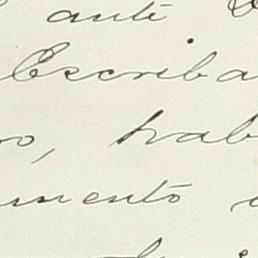 ante
Escriba
o, hab
mento